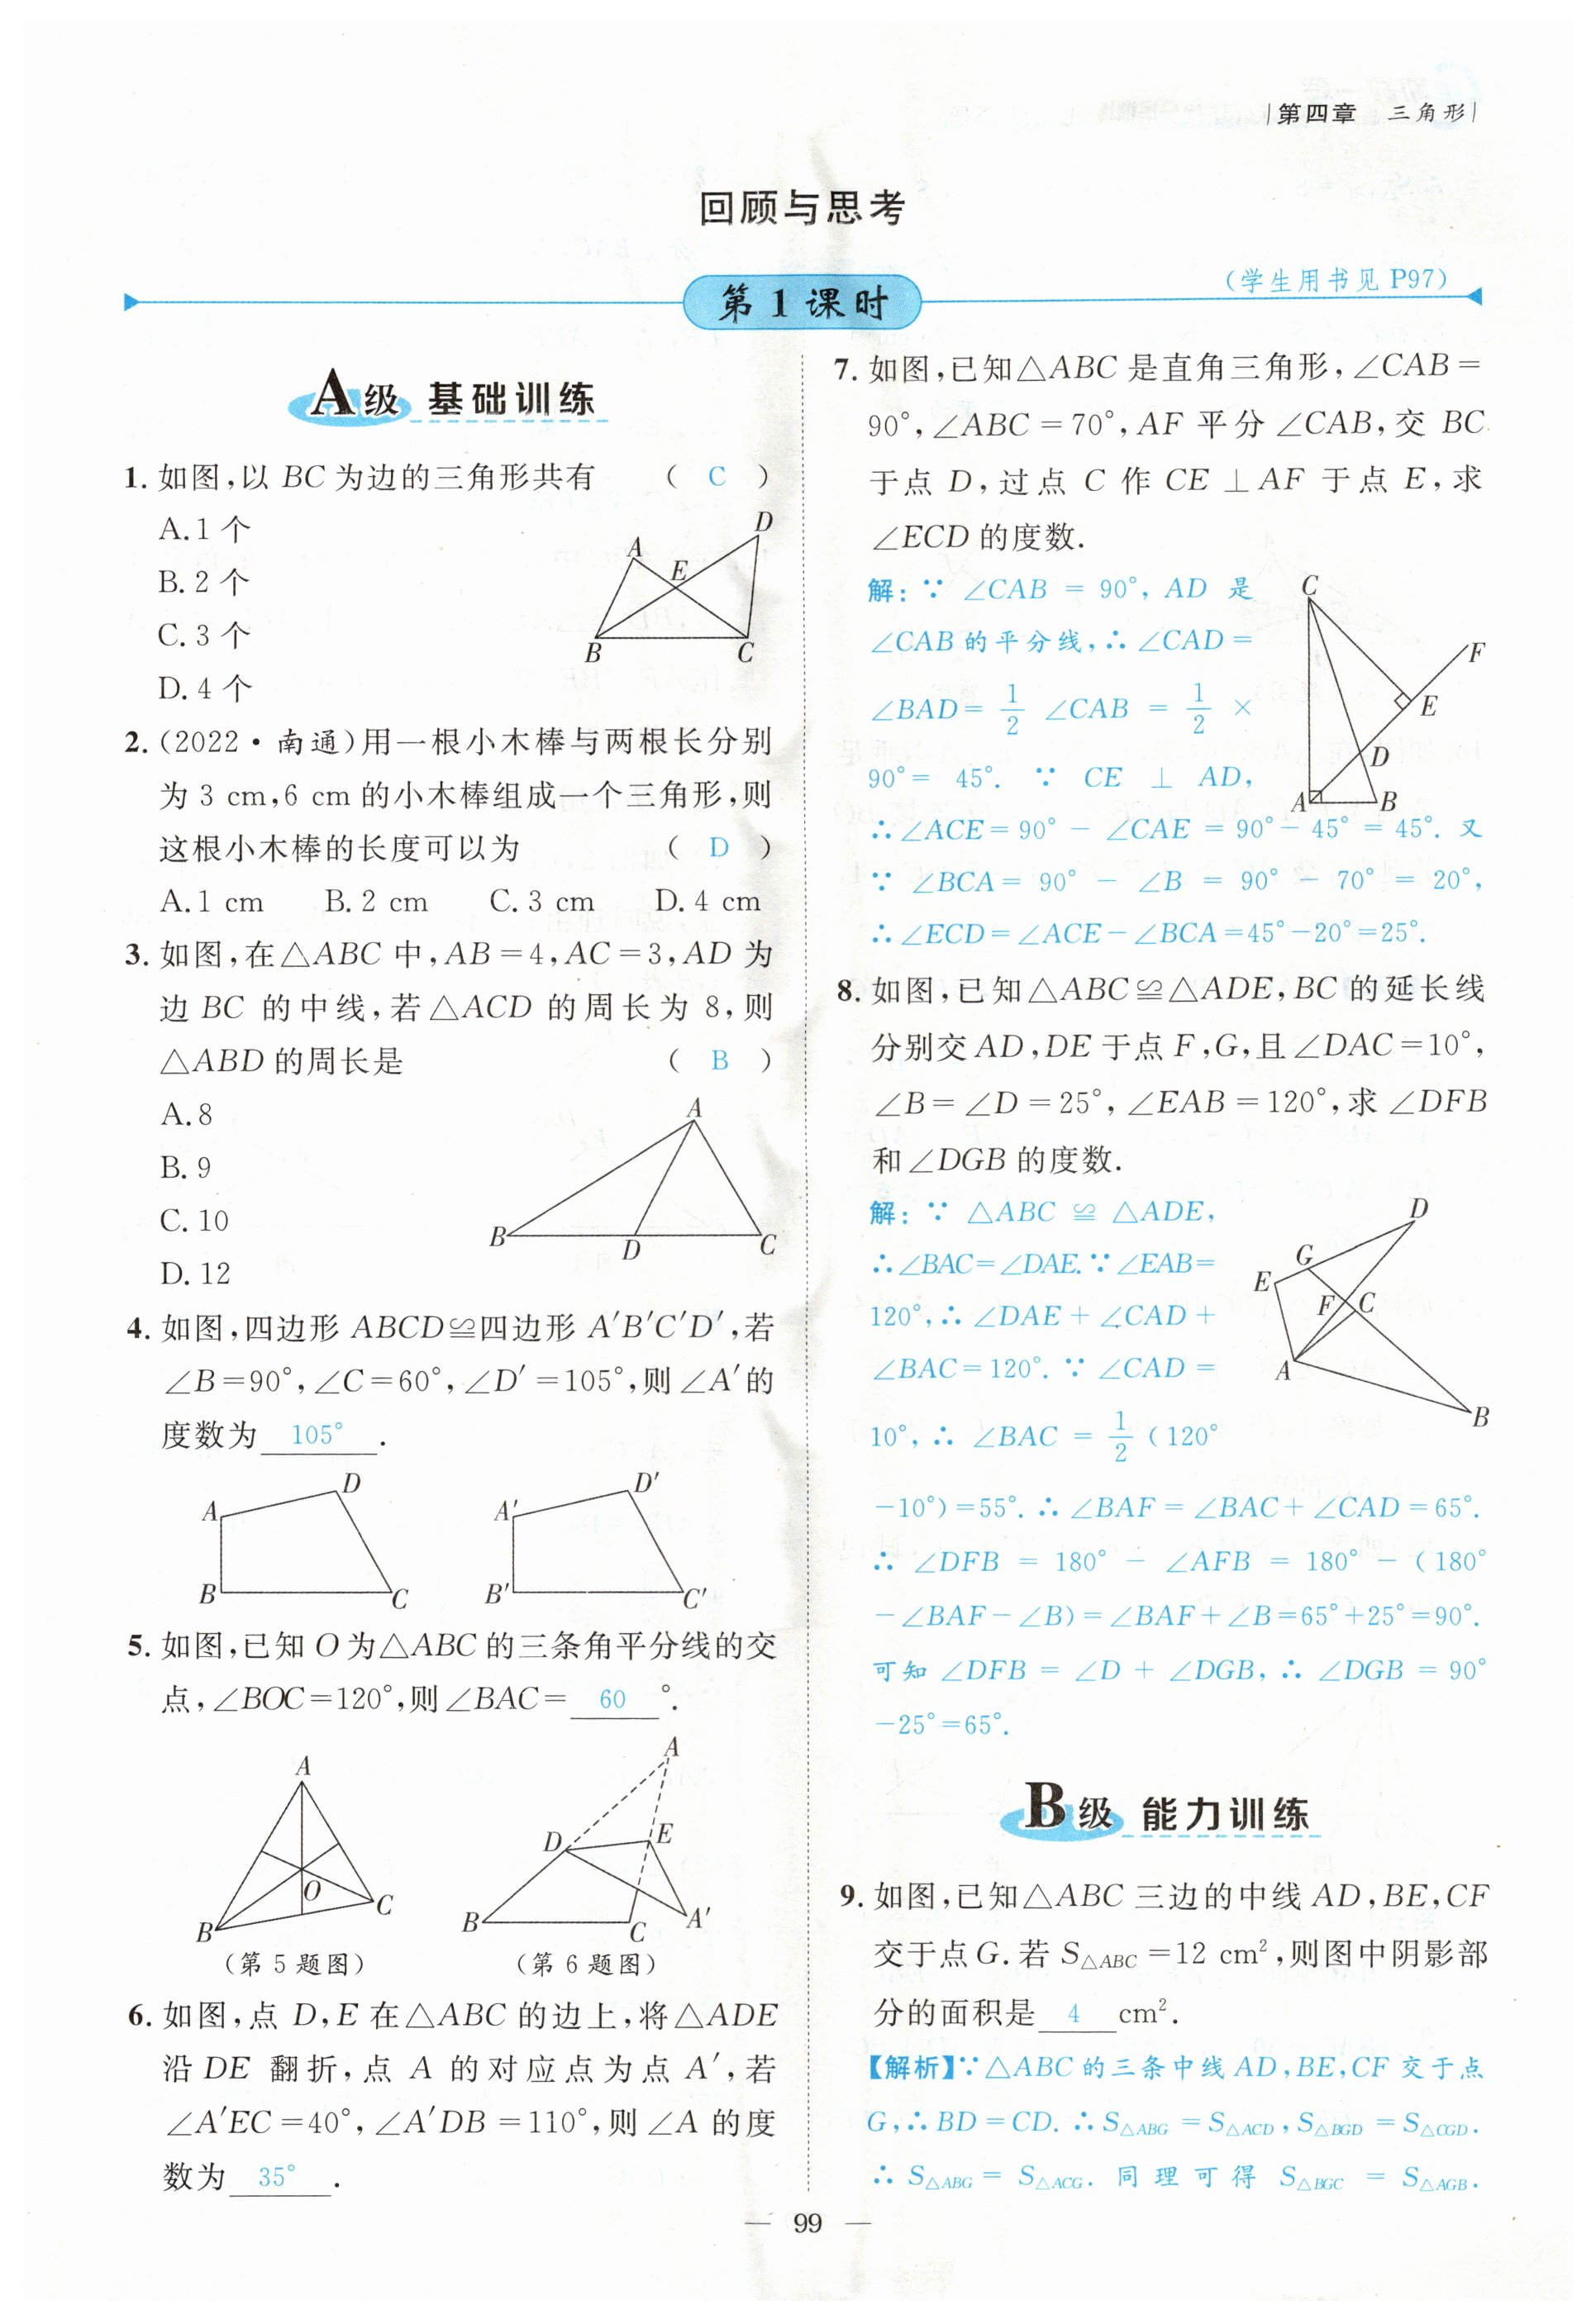 |第四章 三角形|
回顾与思考
(学生用书见 P97)
第 1 课时
A级 基础训练
1. 如图,以 BC 为边的三角形共有 ( C )
A. 1 个
B. 2 个
C. 3 个
D. 4 个
A
D
E
B
C
2. (2022·南通)用一根小木棒与两根长分别
为 3 cm,6 cm 的小木棒组成一个三角形,则
这根小木棒的长度可以为 ( D )
A. 1 cm B. 2 cm C. 3 cm D. 4 cm
3. 如图,在△ABC 中,AB=4,AC=3,AD 为
边 BC 的中线,若△ACD 的周长为 8,则
△ABD 的周长是 ( B )
A. 8
B. 9
C. 10
D. 12
A
B
D
C
4. 如图,四边形 ABCD≌四边形 A′B′C′D′,若
∠B=90°,∠C=60°,∠D′=105°,则∠A′的
度数为 105° .
A
D
B
C
A′
D′
B′
C′
5. 如图,已知 O 为△ABC 的三条角平分线的交
点,∠BOC=120°,则∠BAC= 60 °.
A
O
B
C
(第 5 题图)
A
D
E
B
C
A′
(第 6 题图)
6. 如图,点 D,E 在△ABC 的边上,将△ADE
沿 DE 翻折,点 A 的对应点为点 A′,若
∠A′EC=40°,∠A′DB=110°,则∠A 的度
数为 35° .
7. 如图,已知△ABC 是直角三角形,∠CAB=
90°,∠ABC=70°,AF 平分∠CAB,交 BC
于点 D,过点 C 作 CE⊥AF 于点 E,求
∠ECD 的度数.
解:∵ ∠CAB = 90°, AD 是
∠CAB 的平分线,∴∠CAD=
∠BAD= 1/2 ∠CAB = 1/2 ×
90°= 45°. ∵ CE ⊥ AD,
∴∠ACE=90°-∠CAE=90°-45°=45°. 又
∵ ∠BCA= 90° - ∠B = 90° - 70° = 20°,
∴∠ECD=∠ACE-∠BCA=45°-20°=25°.
C
F
E
D
A
B
8. 如图,已知△ABC≌△ADE,BC 的延长线
分别交 AD,DE 于点 F,G,且∠DAC=10°,
∠B=∠D=25°,∠EAB=120°,求∠DFB
和∠DGB 的度数.
解:∵ △ABC ≌ △ADE,
∴∠BAC=∠DAE.∵∠EAB=
120°,∴∠DAE+∠CAD+
∠BAC=120°. ∵ ∠CAD =
10°, ∴ ∠BAC = 1/2 (120°
-10°)=55°. ∴∠BAF=∠BAC+∠CAD=65°.
∴ ∠DFB = 180° - ∠AFB = 180° - (180°
-∠BAF-∠B)=∠BAF+∠B=65°+25°=90°.
可知 ∠DFB = ∠D + ∠DGB, ∴ ∠DGB = 90°
-25°=65°.
D
G
E
F
C
A
B
B级 能力训练
9. 如图,已知△ABC 三边的中线 AD,BE,CF
交于点 G. 若 S△ABC=12 cm²,则图中阴影部
分的面积是 4 cm².
【解析】∵△ABC 的三条中线 AD,BE,CF 交于点
G,∴BD=CD. ∴S△ABG=S△ACD,S△BGD=S△CGD.
∴ S△ABG = S△ACG. 同理可得 S△BGC = S△AGB.
— 99 —